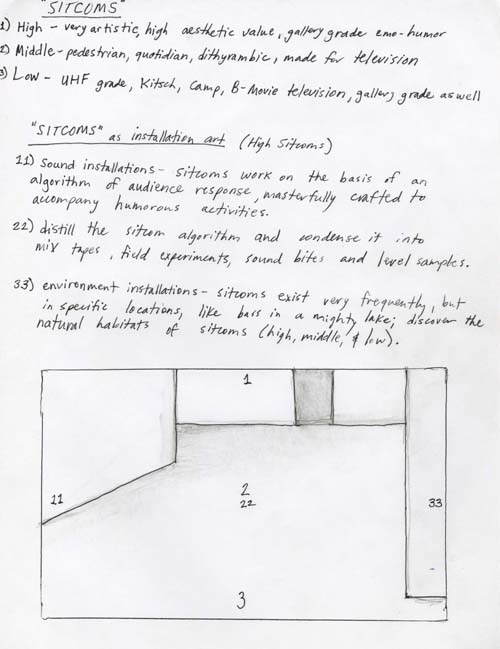 "SITCOMS"
1) High - very artistic, high aesthetic value, gallery grade emo-humor
2) Middle - pedestrian, quotidian, dithyrambic, made for television
3) Low - UHF grade, Kitsch, Camp, B-Movie television, gallery grade as well
"SITCOMS" as installation art (High Sitcoms)
11) sound installations - sitcoms work on the basis of an
algorithm of audience response, masterfully crafted to
accompany humorous activities.
22) distill the sitcom algorithm and condense it into
mix tapes, field experiments, sound bites and level samples.
33) environment installations - sitcoms exist very frequently, but
in specific locations, like bass in a mighty lake; discover the
natural habitats of sitcoms (high, middle, & low).
1
11
2
22
33
3